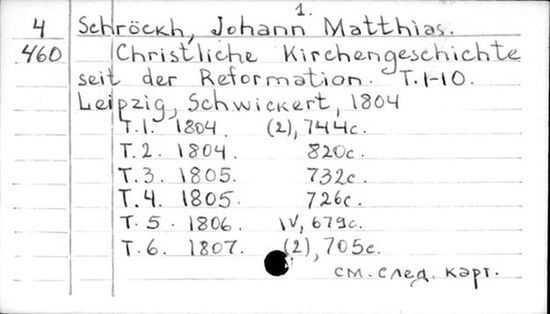 1.
4 Schröckh, Johann Matthias.
460 Christliche Kirchengeschichte
seit der Reformation. T.1-10.
Leipzig, Schwickert, 1804
T.1. 1804. (2), 744c.
T.2. 1804. 820c.
T.3. 1805. 732c.
T.4. 1805. 726c.
T.5. 1806. IV, 679c.
T.6. 1807. (2), 705c.
см. след. карт.